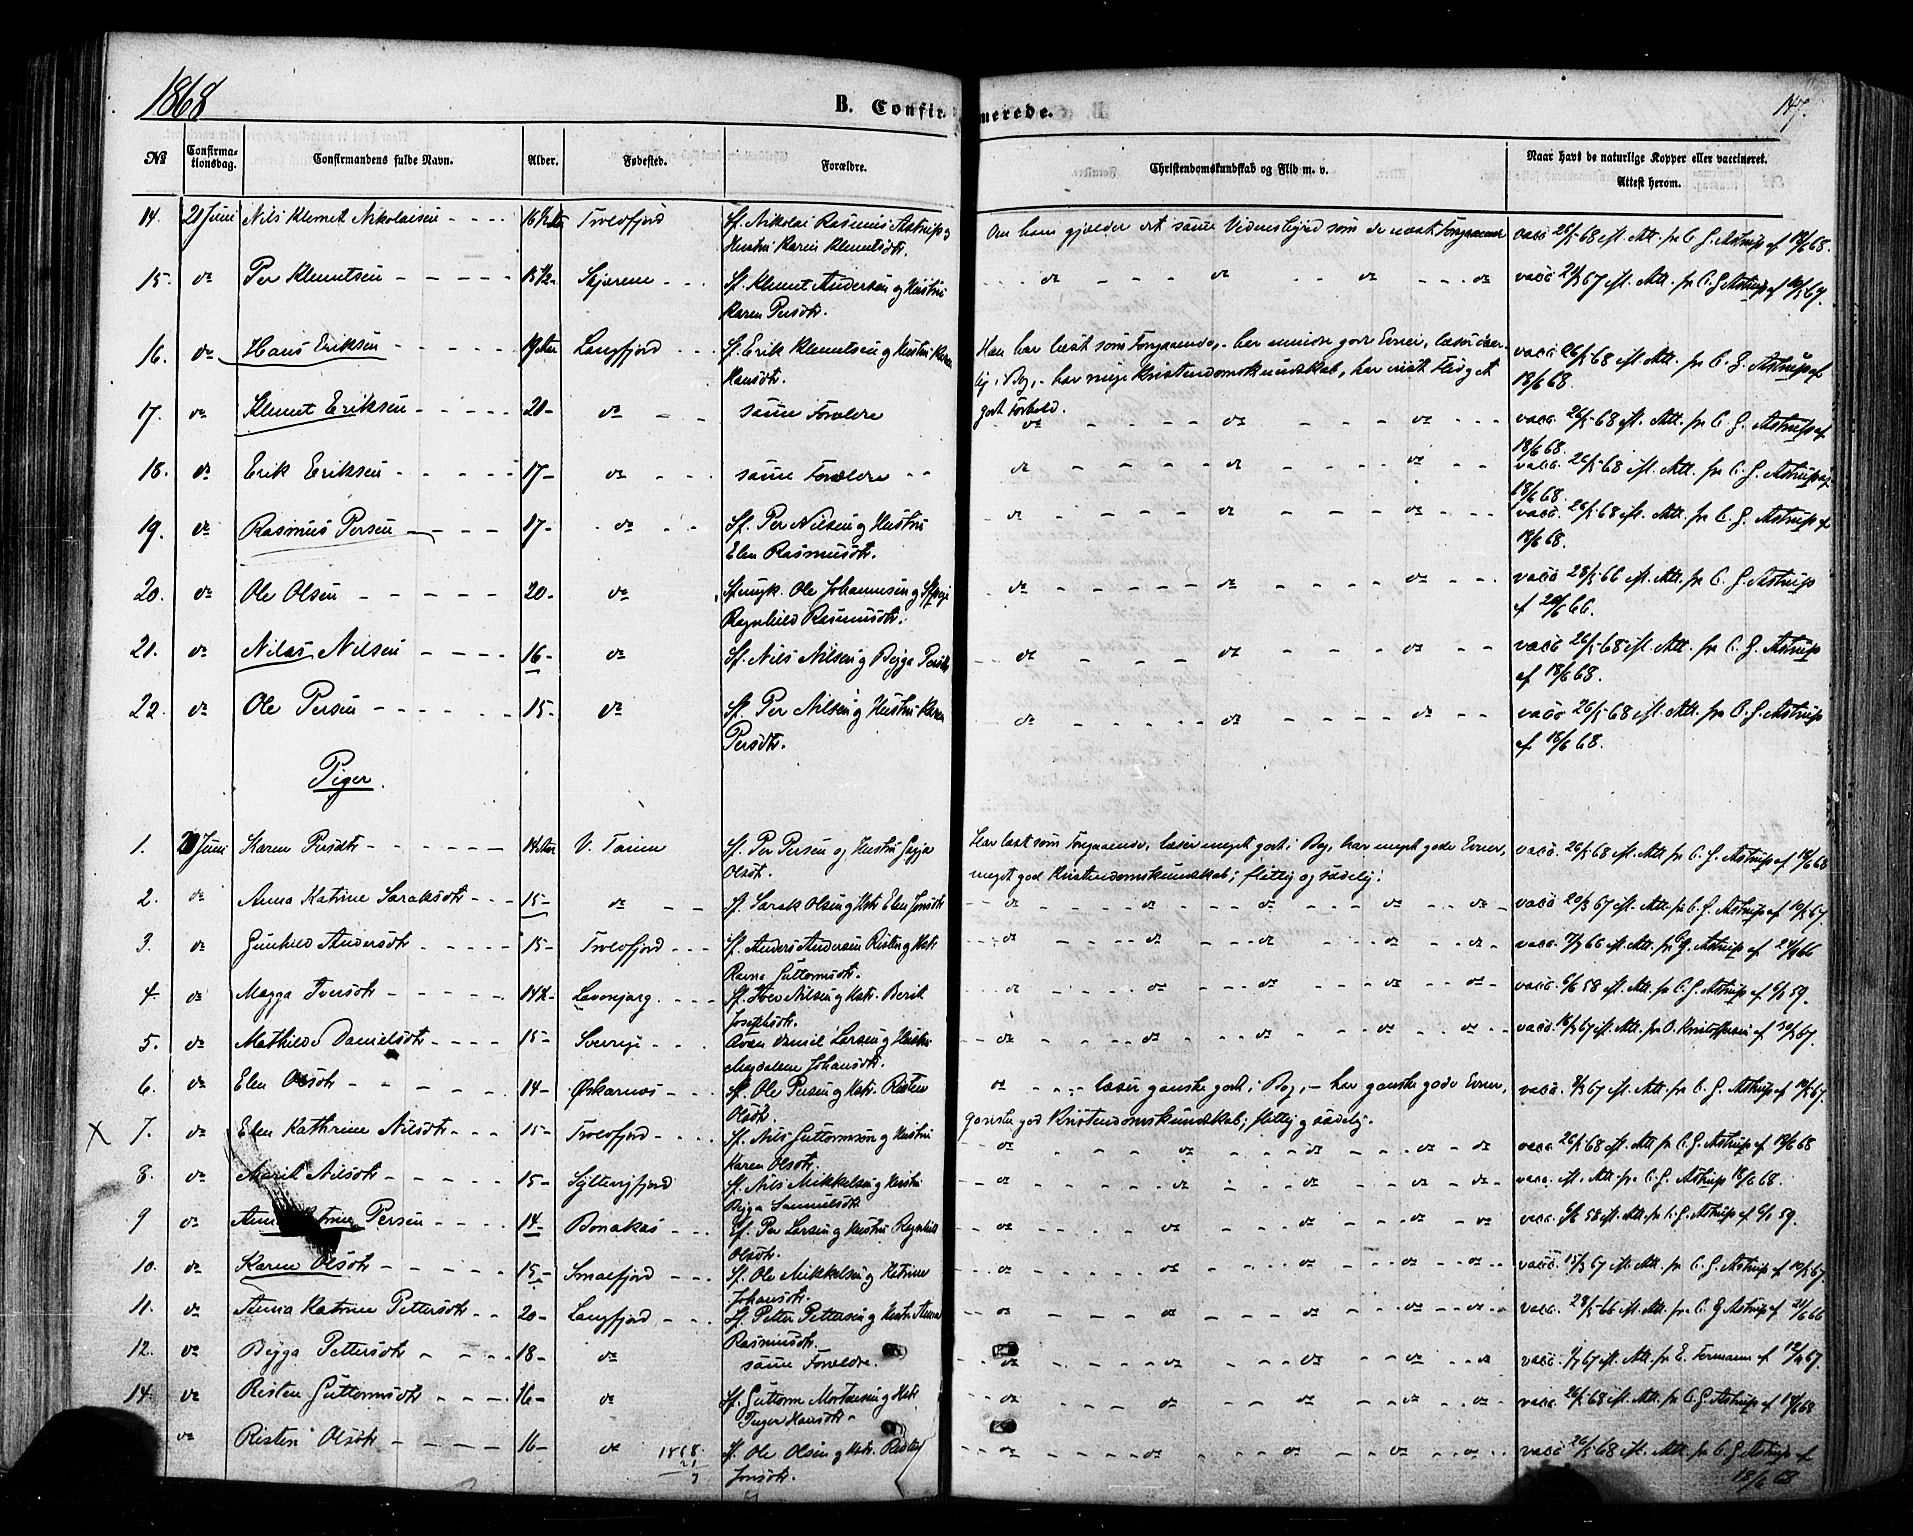 1868
B. Confirmerede.
147.
No
Confirmationsdag.
Confirmandens fulde Navn.
Alder.
Fødested.
Forældre.
Christendomskundskab og Flid m. v.
Naar havs de naturlige Kopper eller vaccineret. Attest herom.
14. 21 Juni Nils Klemet Nikolaisen - - - - 16 1/2 Troldfjord Sf. Nikolai Rasmus Astrup og
Hustru Karen Klemetsdtr. Om ham gjælder det samme som de næst Forgaaende vacc 26/5 68 ifl. Att. fr C. G. Astrup af 18/6 68.
15. do Per Klemetsen - - - - 15 1/2 - Skjerene - - - Sf. Klemet Andersen og Hustru
Karen Persdtr. do - - do - - do - - do vacc. 67 ifl. Att. fr C. G. Astrup af 67.
16. do Hans Eriksen - - - - 19 Aar Langfjord - - - Sf. Erik Klemetsen og Hustru Karen
Hansdtr. Han har læst som Forgaaende, - har mindre gode Evner, læser daarlig i Bog, - har Kristendomskundskab, har vist Flid, et
godt Forhold. vacc 26/5 68 ifl. Att. fr C. G. Astrup af
18/6 68.
17. do Klemet Eriksen - - - - 20 - do - - samme Forældre do - - do - - do - - vacc. 26/5 68 ifl. Att. fr C. G. Astrup af
18/6 68.
18. do Erik Eriksen - - - - 17 - do - - samme Forældre - - do - - do - - do - - vacc. 26/5 68 ifl. Att. fr C. G. Astrup af
18/6 68.
19. do Rasmus Persen - - - 17 - do - - Sf. Per Nilsen og Hustru
Elen Rasmusdtr. do - - do - - do - - vacc. 26/5 68 ifl. Att. fr C. G. Astrup af
18/6 68.
20. do Ole Olsen - - - - 20 - do Ole Johannesen og
Ragnhild Rasmusdtr. do - - do - - do - - vacc 28/5 66 ifl. Att. fr C. G. Astrup
af 20/6 66.
21. do Nilas Nilsen - - - - 16 - do Sf. Nils Nilsen og Bigga Persdtr do - - do - - do - - vacc 26/5 68 ifl. Att. fr C. G. Astrup
af 18/6 68.
22. do Ole Persen - - - - 15 - do Sf. Per Nilsen og Hustru Karen
Persdtr. do - - do - - do - - vacc 26/5 68 ifl. Att. fr C. G. Astrup
af 18/6 68.
Piger.
1. 21 Juni Karen Persdtr - - - - 14 Aar V. Tanen Sf. Per Persen og Hustru
Olsdtr. Har læst som Forgaaende, læser meget godt i Bog, har meget gode Evner,
meget god Kristendomskundskab; flittig og sædelig. vacc. 26/5 68 ifl. Att. fr C. G. Astrup af 18/6 68
2. do Anna Katrine Saraksdtr - - 15 - do - - Sf. Sarak Olsen og Hstr Elen Jonsdtr do - - do - - do - - do - - do - vacc 67 ifl. Att. fr C. G. Astrup af 67.
3. do Gunhild Andersdtr - - - - 15 - Troldfjord - - Sf. Anders Andersen Risten og Hstr
Ravna Guttormsdtr. do - - do - - do - - do - - do - vacc. 66 ifl. Att. fr G. Astrup af 66
4. do Magga Iversdtr - - - - 14 1/2 - Lavonjarg - - - Sf. Iver Nilsen og Hstr. Berit
Josephsdtr. do - - do - - do - - do - - do - vacc. 58 ifl. Att. fr C. G. Astrup af 59.
5. do Mathilde Danielsdtr - - - - 15 - Sverrige - - Daniel Larsen og Hustru
Magdalene Johansdtr. do - - do - - do - - do - - do - vacc. 67 ifl. Att. fr O. Kristoffersen af 67.
6. do Elen Olsdtr - - - - 14 - Øskarnæs - - Sf. Ole Persen og Hstr. Risten
Olsdtr. do - - - læser ganske godt i Bog, - har ganske gode Evner,
ganske god Kristendomskundskab; flittig og sædelig. vacc. 67 ifl. Att. fr C. G. Astrup af 67.
X 7. do Elen Kathrine Nilsdtr - - - 15 - Troldfjord - - - Sf. Nils Guttormsen og Hustru
Karen Olsdtr. do - - do - - do - - do - - do vacc 26/5 68 ifl. Att. fr C. G. Astrup af 18/6 68
8. do Marit Nilsdtr - - - - 15 - Syltevigfjord Sf. Nils Mikkelsen og Hustru
Bigga Samuelsdtr. do - - do - - do - - do - - do vacc. ifl. Att. fr C. G. Astrup 18/6 68.
9 do Anna Katrine Persen - - - - 14 - Bonakas - - - Sf. Per Larsen og Hustru Ragnhild
Olsdtr. do - - do - - do - - do vacc. 58 ifl. Att. fr C. G. Astrup af 59.
10. do Karen Olsdtr - - - - 15 - Smalfjord - - - Sf. Ole Mikkelsen og Katrine
Johansdtr. do - - do - - do - - do - - do vacc 67 ifl. Att. fr C. G. Astrup af 67.
11. do Anna Katrine Pettersdtr - - 20 - Langfjord - - - Sf. Petter Pettersen og Hustr. Anna
Rasmusdtr. do - - do - - do - - do - - do vacc. 28/5 66 ifl. Att. fr C. G. Astrup af 66
12. do Bigga Pettersdtr - - - - 18 - do samme Forældre. do - - do - - do - - do - - do vacc. 67 ifl. Att. fr E. Formann af 67.
14. do Risten Guttormsdtr - - - - 16 - do Sf. Guttorm Mortensen og Hstr
Inger Hansdtr - do - - do - - do - - do - - do - vacc. 26/5 68 ifl. Att. fr C. G. Astrup af 18/6 68
do Risten Olsdtr - - - - 16 - do 1868 21 Sf. Ole Olsen og Hstr. Risten
Jonsdtr. do - - do - - do - - do - - do - vacc 26/5 68 ifl. Att. fr C. G. Astrup af
18/6 68